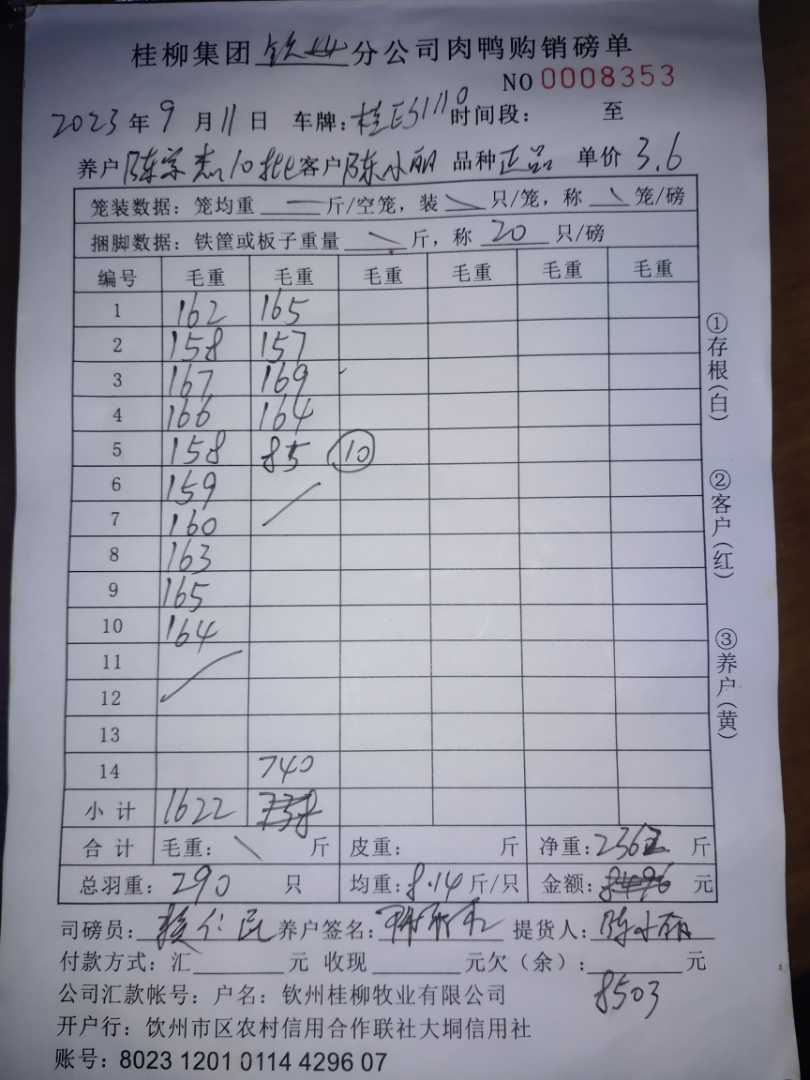 桂柳集团钦州分公司肉鸭购销磅单
NO 0008353
2023年9月11日 车牌:桂ES1110 时间段: 至
养户 陈学杰10批 客户 陈小丽 品种 正品 单价 3.6
笼装数据:笼均重 斤/空笼,装 只/笼,称 笼/磅
捆脚数据:铁筐或板子重量 斤,称 20 只/磅
编号 毛重 毛重 毛重 毛重 毛重 毛重
1 162 165
2 158 157
3 167 169
4 166 164
5 158 85 ⑩
6 159
7 160
8 163
9 165
10 164
11
12
13
14 740
小计 1622 738
合计 毛重: 斤 皮重: 斤 净重:2362 斤
总羽重:290 只 均重:8.14 斤/只 金额:8496 元
司磅员: 养户签名: 提货人:陈小丽
付款方式:汇 元 收现 元欠(余): 元
8503
公司汇款帐号:户名:钦州桂柳牧业有限公司
开户行:钦州市区农村信用合作联社大垌信用社
账号:8023 1201 0114 4296 07
①存根(白)
②客户(红)
③养户(黄)